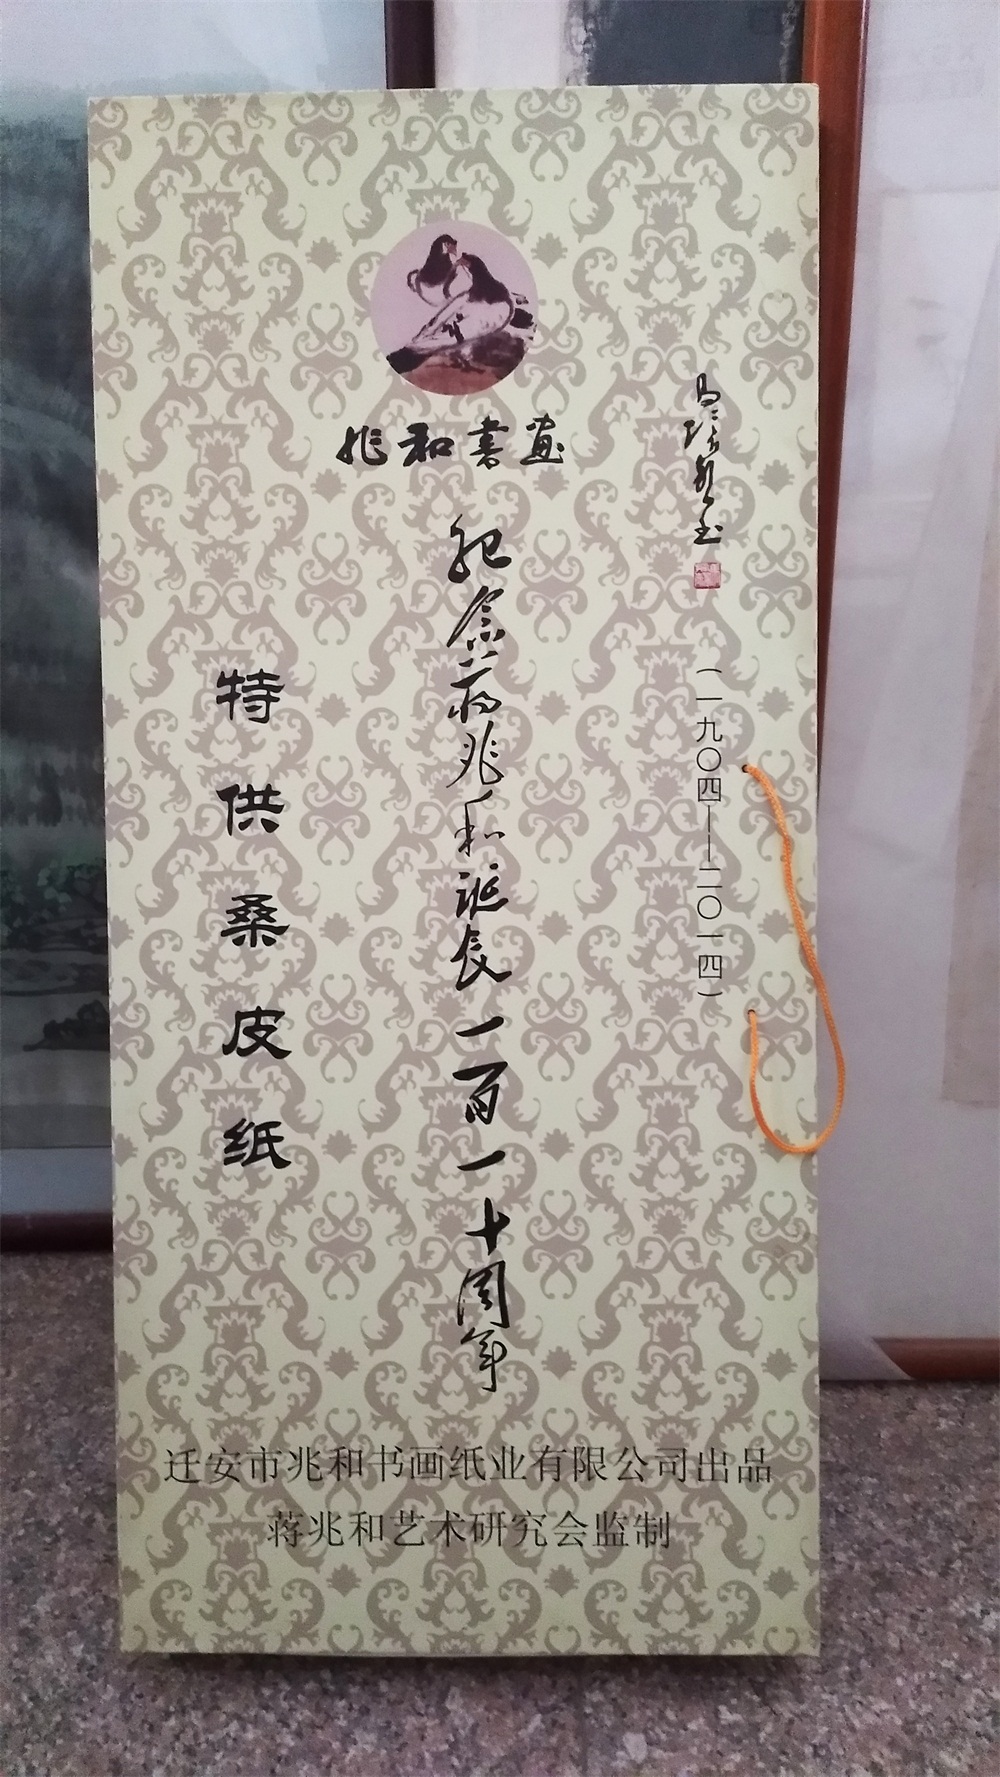 兆和書画
(一九〇四——二〇一四)
纪念蒋兆和诞辰一百一十周年
特供桑皮纸
迁安市兆和书画纸业有限公司出品
蒋兆和艺术研究会监制